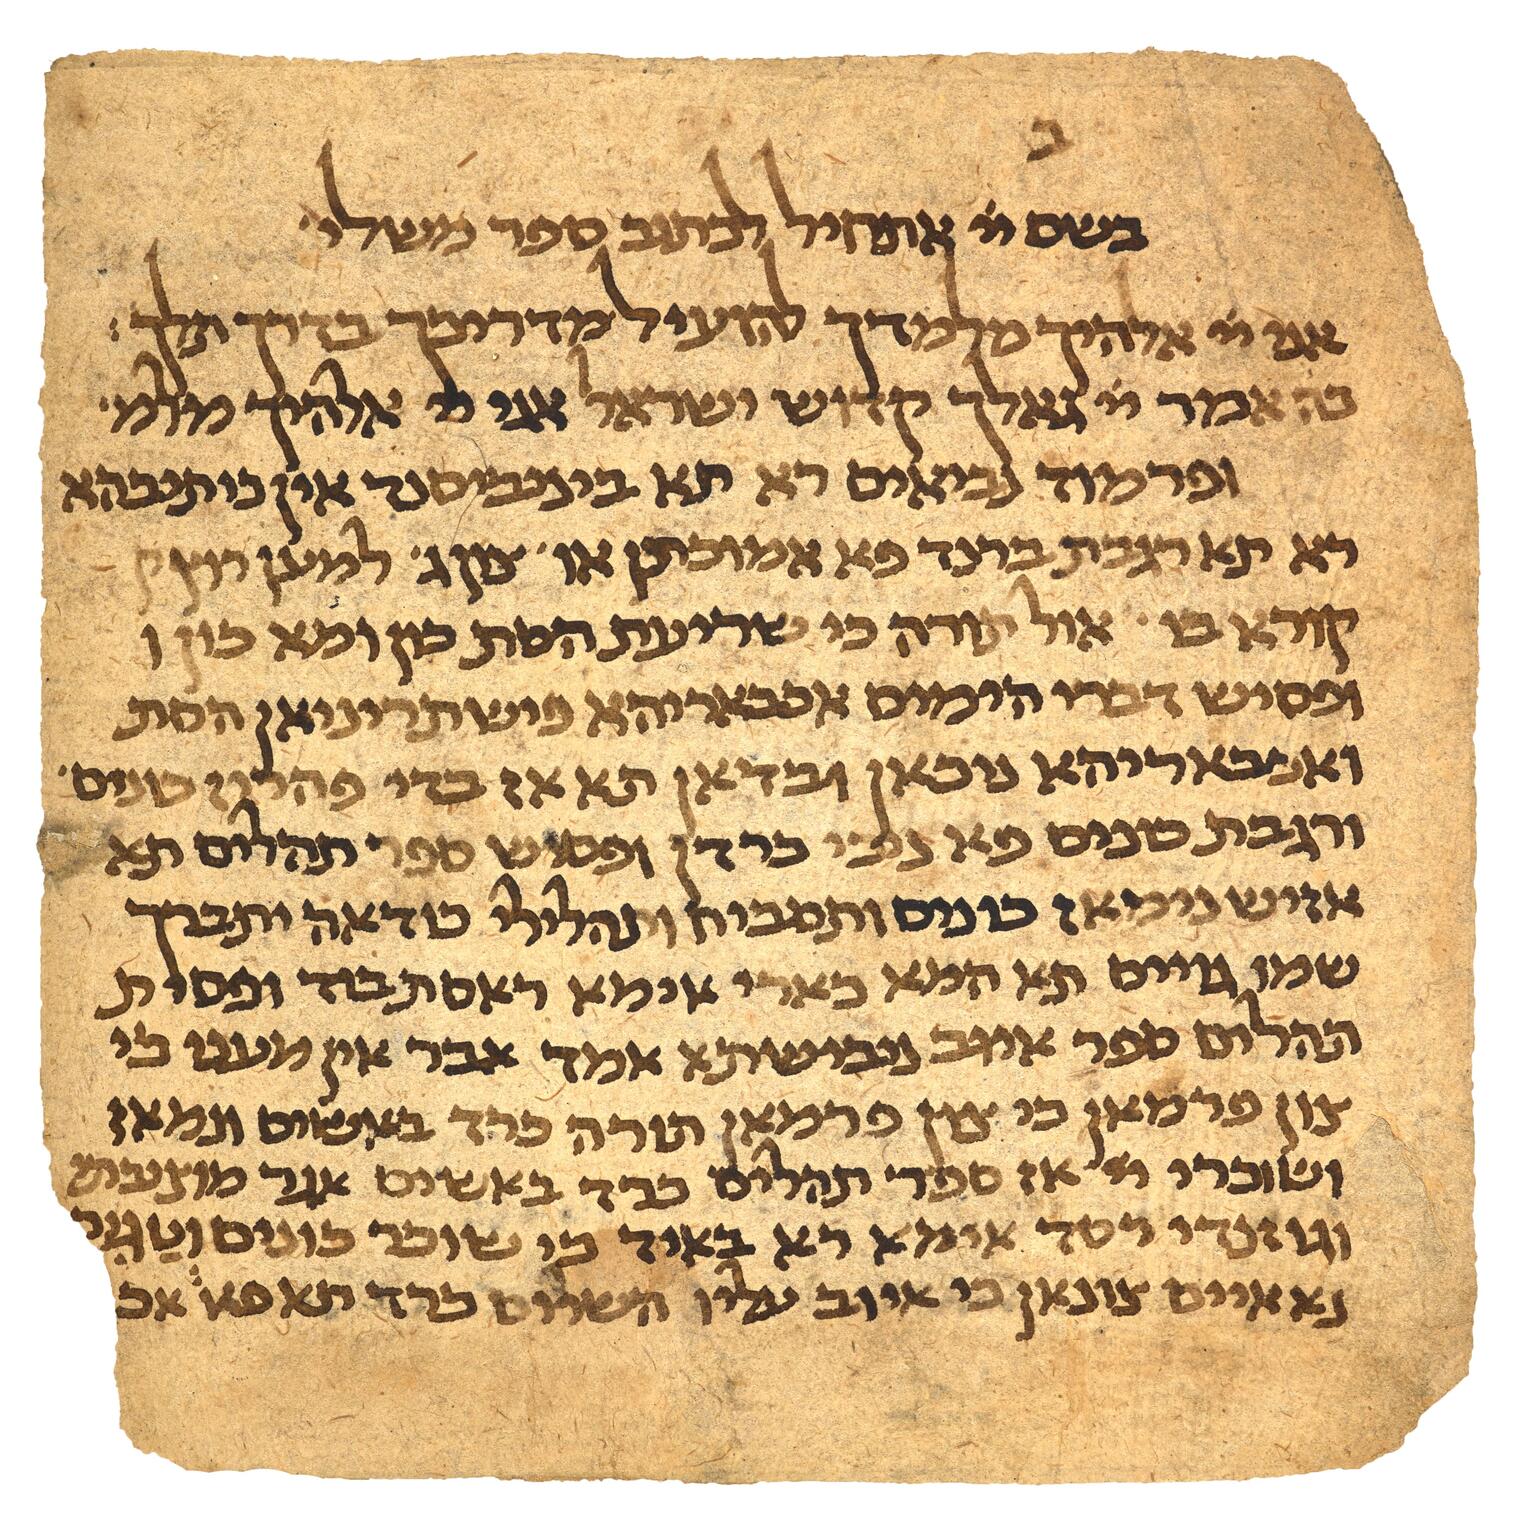 ב
בשם יי אתחיל לכתוב ספר משלי
אני יי אלהיך מלמדך להועיל מדריכך בדרך תלך :
כה אמר יי גאלך קדוש ישראל אני יי אלהיך מלמ׳
ופרמוד נביאים רא תא בינביסנד אין כותיבהא
רא תא רגבת ברנד פא אמוכתן או׳ צון ג׳ למען ירוץ
קורא בו׳ אול תורה כי שריעת הסת כון ומא כון ו
ופסיש דברי הימים אכבאריהא פישתריניאן הסת
ואכבאריהא ניכאן ובדאן תא אז בדי פהריז כונים׳
ורגבת כונים פא ניכי כרדן ופסיש ספר תהלים תא
אזיש נימאז כונים ותסביח ותהלילי כודאה יתברך
שמו גויים תא המא כארי אימא ראסת בוד ופסי ת
תהלים ספר איוב נבישתא אמד אבר אין מעני כי
צון פרמאן כי צון פרמאן תורה כרד באשים ונמאז
ושוכרי יי אז ספר תהלים כרד באשים אגר מוצבתי
וגוזנדי רסד אימא רא באיד כי שוכר כונים
נאאיים צונאן כי איוב עליו השלום כרד תא פא אכ